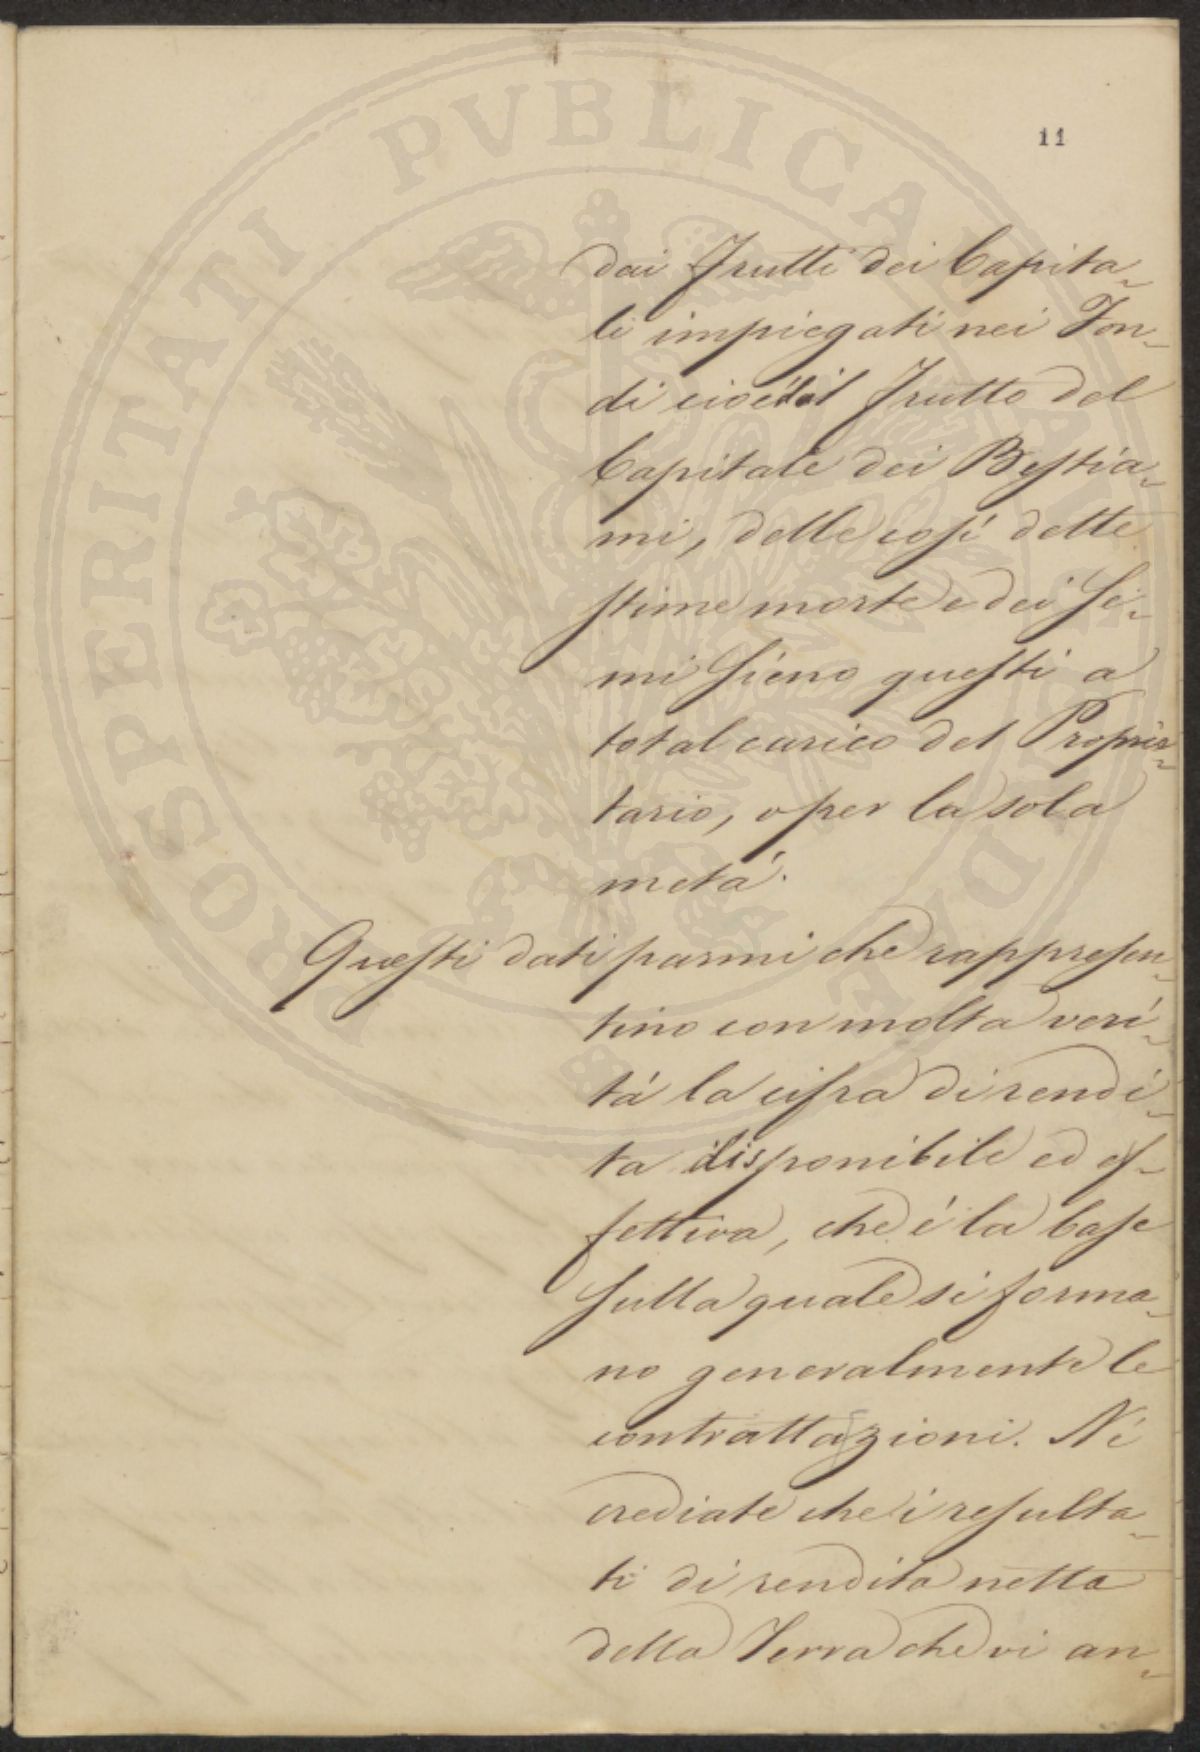 PROSPERITATI PVBLICAE
11
dai Frutti dei Capita-
li impiegati nei Fon-
di cioè dal Frutto del
Capitale dei Bestia-
mi, delle così dette
stime morte e dei Se-
mi sieno questi a
total carico del Proprie-
tario, o per la sola
metà.
Questi dati parmi che rappresen-
tino con molta veri-
tà la cifra di rendi-
ta disponibile ed ef-
fettiva, che è la base
sulla quale si forma-
no generalmente le
contrattazioni. Né
crediate che i resulta-
ti di rendita netta
della Terra che vi an-